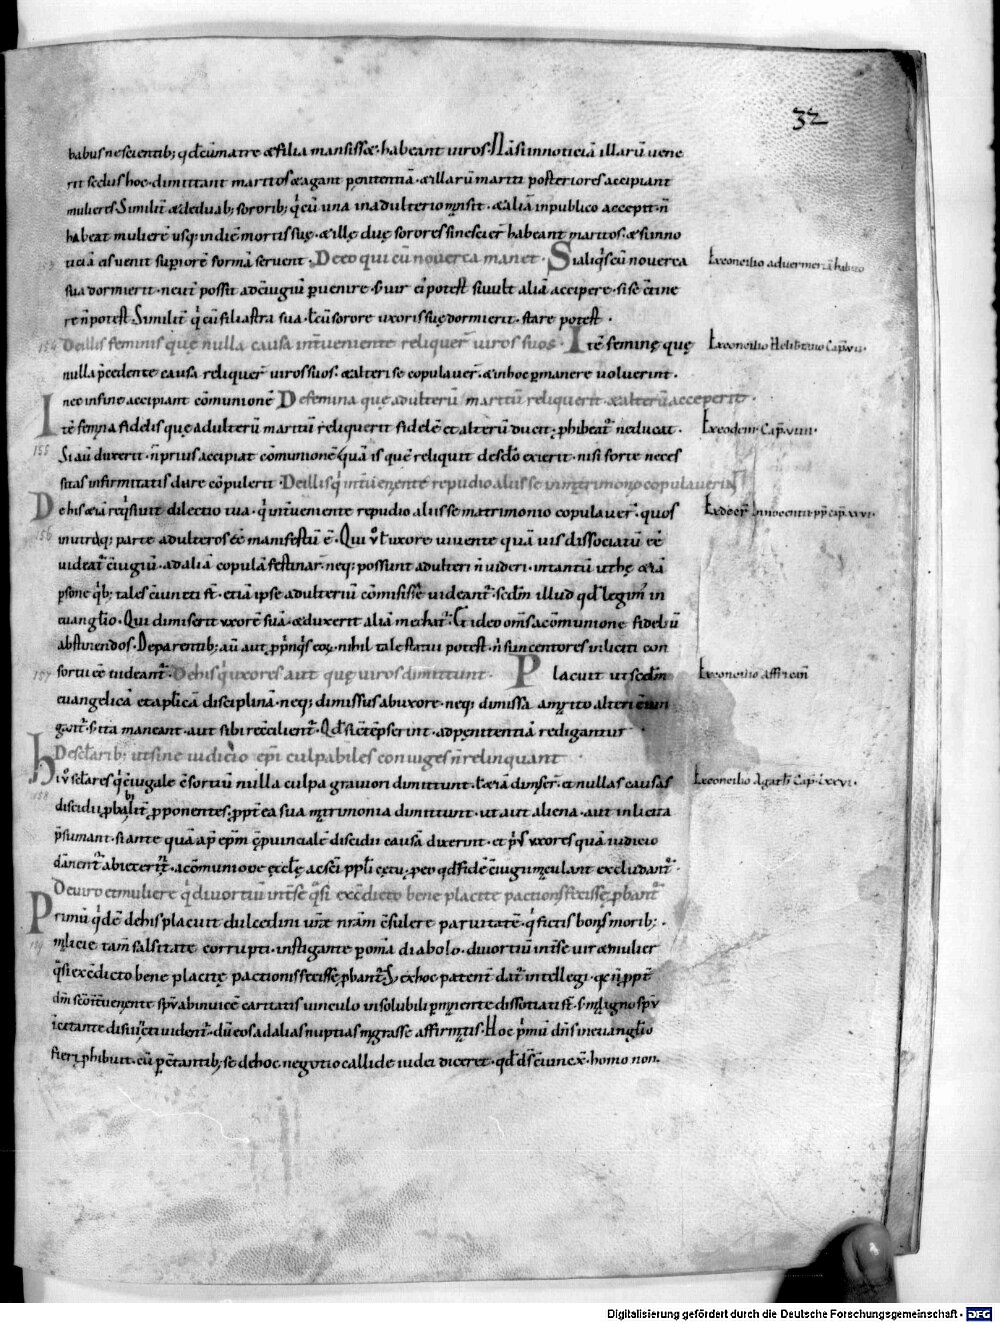 32
babus nescientib; qd cū matre & filia mansiss&. habeant viros. Nā si in noticiā illarū uene
rit scelus hoc. dimittant maritos & agant penitentiā. & illarū mariti posteriores accipiant
mulieres. Similit & de duab; sororib; q cū una in adulterio mansit. & aliā in publico accepit. n
habeat mulierē usq; in diē mortis suę. & illę duę sorores si nescier habeant maritos. & si in no
ticiā eis uenit superiorē formā seruent. De eo qui cū nouerca manet. Si aliqs cū nouerca
Ex concilio ad uermeriā habito
sua dormierit. neut possit ad ciugiū puenire. s uir ei potest si uult aliā accipere. si se ctine
re n potest. Similit q cū filiastra sua. l cū sorore uxoris suę dormierit. stare potest.
154
De illis feminis quę nulla causa interueniente reliquer uiros suos. Itē feminę quę
Ex concilio Helibtano Cap. viii.
nulla pcedente causa reliquer uiros suos. & alteri se copulauer. & in hoc pmanere uoluerint.
nec in fine accipiant cōmunionē De femina que adulterū maritū reliquerit. & alterū acceperit.
Itē femina fidelis quę adulterū maritū reliquerit fidelē et alterū ducit. phibeat ne ducat.
Ex eodem Cap. viiii.
155
Si aū duxerit. n prius accipiat cōmunionē quā is quē reliquit de sclo exierit. nisi forte neces
sitas infirmitatis dare cōpulerit. De illis q interueniente repudio aliis se in matrimonio copulauerint
De his &iā reqsiuit dilectio tua. q interueniente repudio aliis se matrimonio copulauer. quos
Ex decr Innocentii pp cap. xxvi.
156
in utraq; parte adulteros eē manifestū ē. Qui u l uxore uiuente quā uis dissociatū eē
uideat ciugiū. ad aliā copulā festinar. neq; possunt adulteri n uideri. in tantū ut hę &iā
psone qb; tales ciuncti st. etiā ipse adulteriū cōmisisse uideant. scdm illud qd legim in
euanglio. Qui dimiserit uxorē suā. & duxerit aliā mechat. Et ideo oms a cōmunione fideliū
abstinendos. De parentib; aū aut ppinqs eoꝝ. nihil tale statui potest. n si incentores inliciti con
sortii eē uideant. De his q uxores aut quę uiros dimittunt. Placuit ut scdm
Ex concilio Affrican
157
euangelicā et aplicā disciplinā. neq; dimissus ab uxore. neq; dimissa a marito alteri ciun
gant. s ita maneant. aut sibi recilient. Qd si ctepserint. ad penitentiā redigantur
De sclarib; ut sine iudicio epi culpabiles coniuges n relinquant
Hi u sclares q ciugale csortiū nulla culpa grauiori dimittunt. l &iā dimiser. et nullas causas
Ex concilio Agath Cap. lxxvi.
158
discidii pbabilit pponentes. ppt ea sua matrimonia dimittunt. ut aut aliena. aut inlicita
psumant. si ante quā ap epm cpuinciale discidii causā dixerint. et pus uxores quā iudicio
dānent abiecerint. a cōmunione ęcclę ac sci ppli cetu. p eo qd fidē & ciugia maculant excludant.
De uiro et muliere q diuortiū int se qsi ex edicto bene placite pactionis fecisse pbant
Primū qdē de his placuit dulcedini urae nram csulere paruitatē. q fictis bonis morib;.
159
malicie tam falsitate corrupti. instigante poma diabolo. diuortiū int se uir & mulier
qsi ex edicto bene placitę pactionis fecisse pbant. Sj ex hoc patent dat intellegi. qe n ppt
dm sco interuenente spu ab inuicē caritatis uinculo insolubili pmanente dissotiati st. s maligno spu
icitante disiuncti uident. dū eos ad alias nuptias migrasse affirmatis. Hoc pmū dns in euanglio
fieri phibuit. cū pctantib; se de hoc negotio callide iudei diceret. qd ds ciunex. homo non.
Digitalisierung gefördert durch die Deutsche Forschungsgemeinschaft - DFG